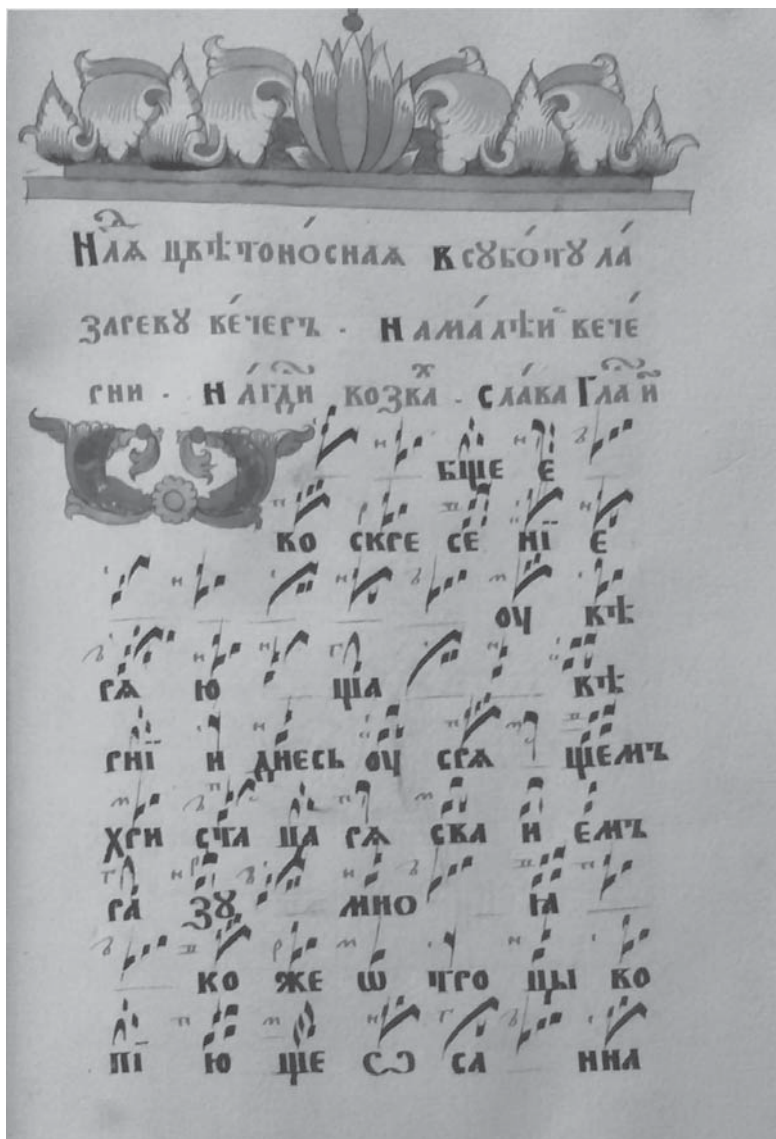 Нлѧ цвѣтоно́снаѧ в сꙋбо́тꙋ ла́
заревꙋ ве́черъ . на ма́лѣй вече́
рни . на́ гди возва . сла́ва Гла и
бще е
во скре се нїе е
оу вѣ
рѧ ю ща вѣ
рнї и днесь оу срѧ щемъ
хри ста ца рѧ сла и емъ
ра зꙋ мно ꙗ
ко же ѡ тро цы во
пї ю ще ѡ са нна